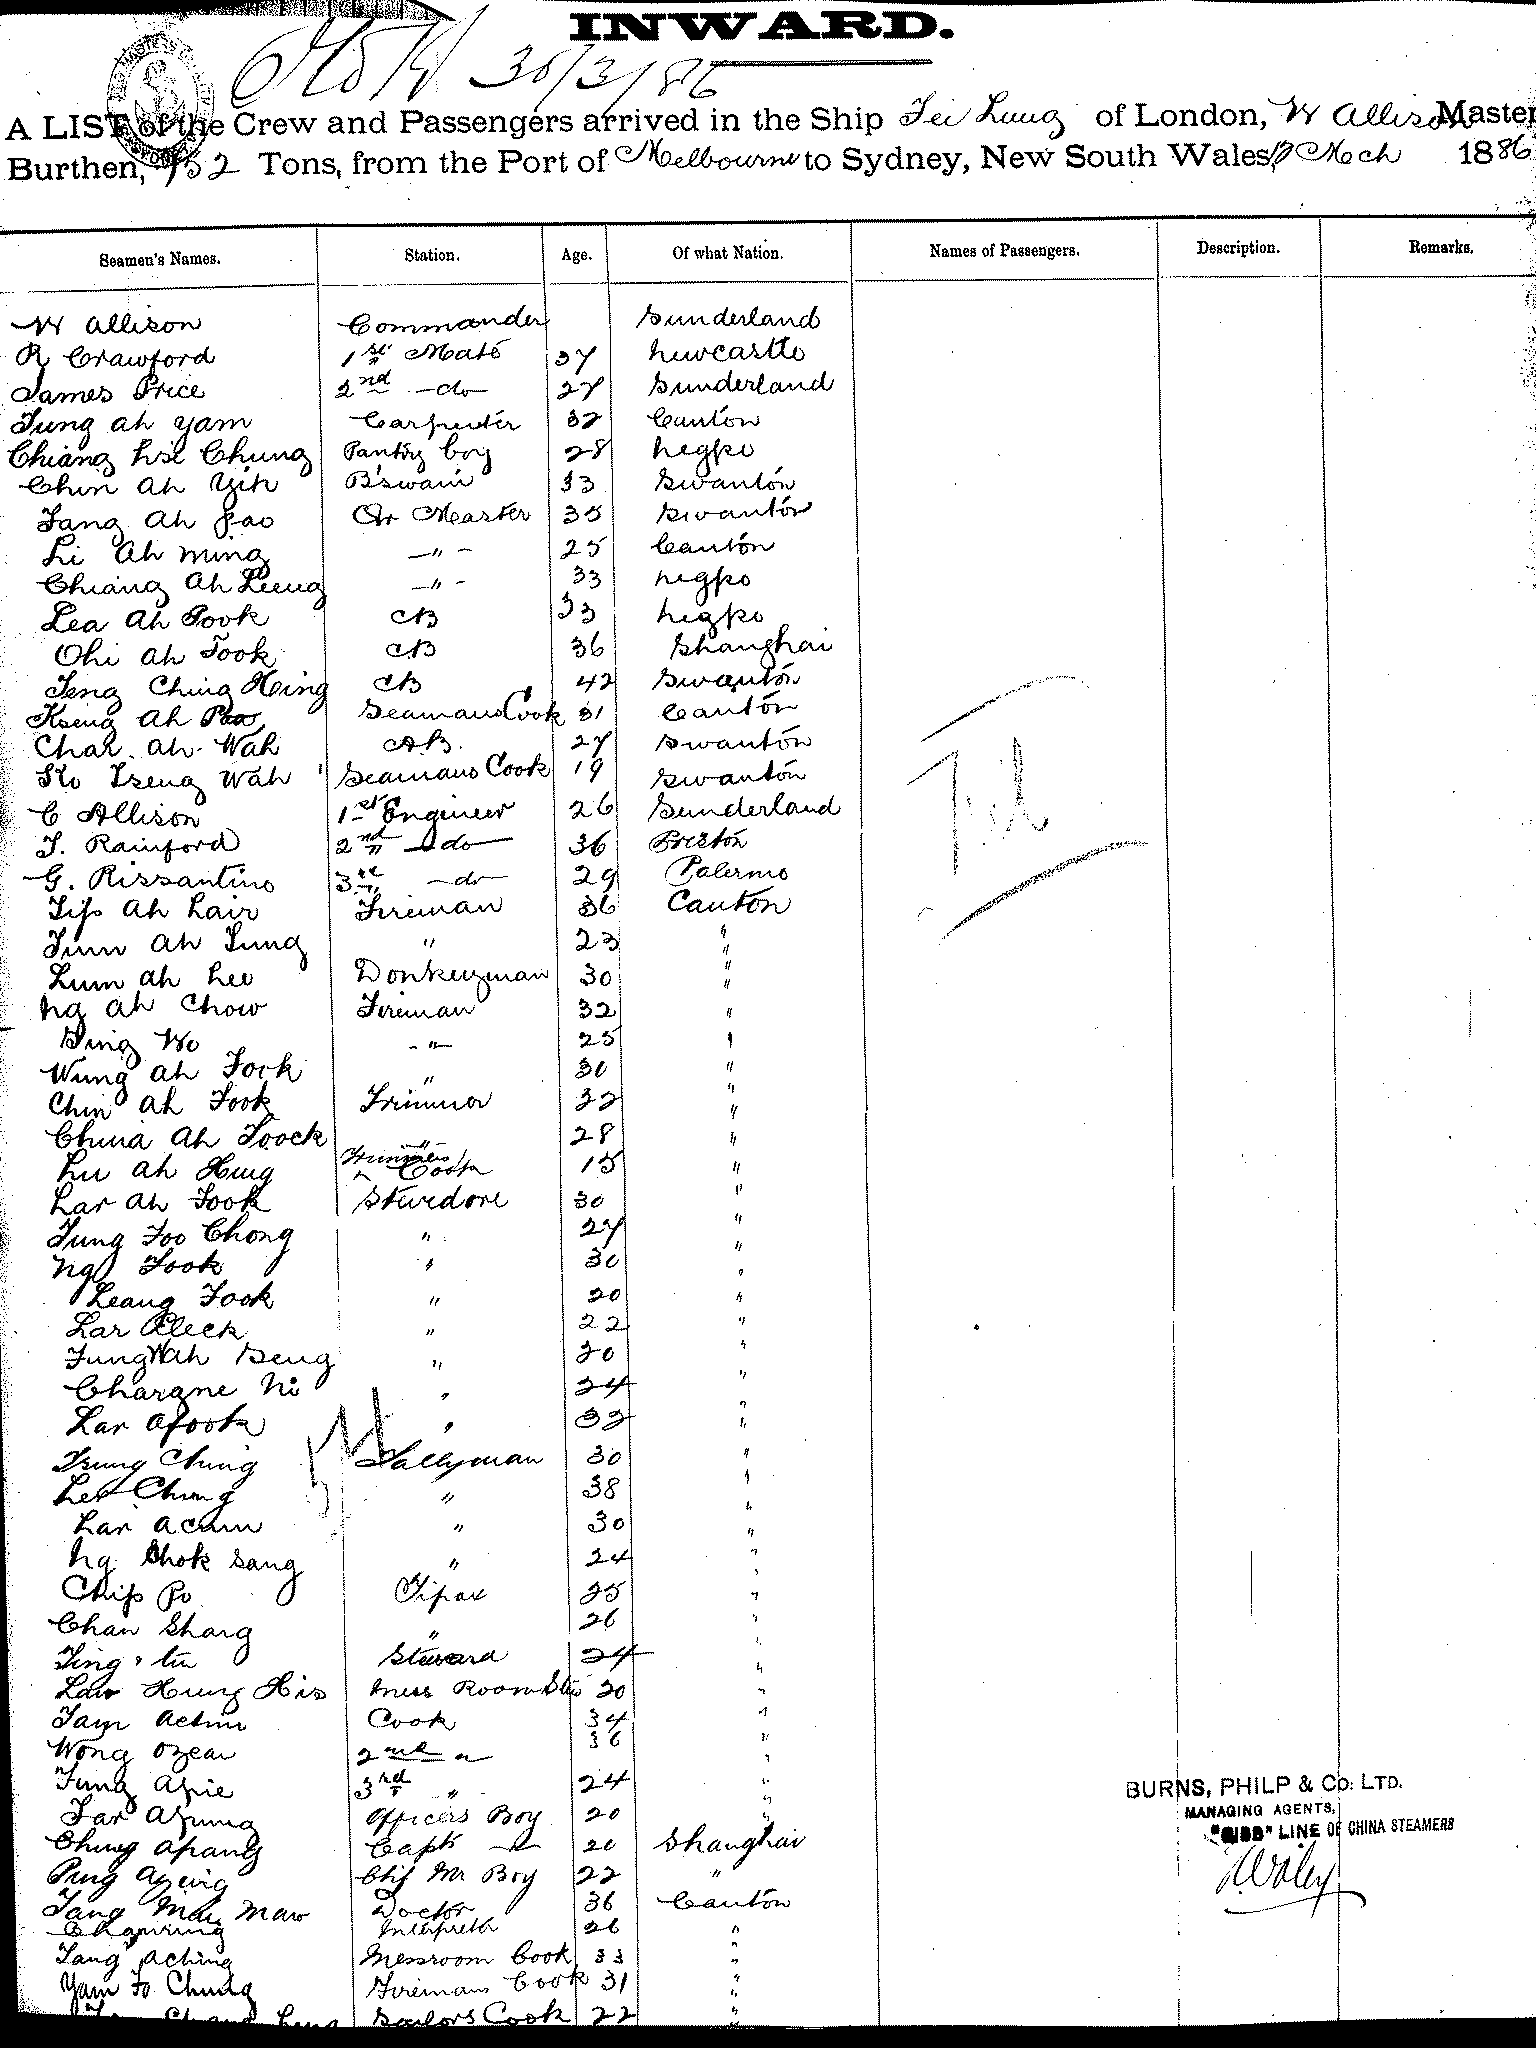 INWARD.
30/3/86
A LIST of the Crew and Passengers arrived in the Ship Fei Lung of London, W Allison Master
Burthen, 952 Tons, from the Port of Melbourne to Sydney, New South Wales, Mch 1886
Seamen's Names. Station. Age. Of what Nation. Names of Passengers. Description. Remarks.
W Allison Commander Sunderland
R Crawford 1st Mate 37 Newcastle
James Price 2nd -do- 27 Sunderland
Tung ah yam Carpenter 32 Canton
Chiang hse Chung Pantry boy 28 negpo
Chin Ah Yih B'swain 33 Swanton
Tang Ah Qr Master 35 Swanton
Li Ah ming -"- 25 Canton
Chiang Ah Leeng -"- 33 negpo
Lea Ah Fook AB 33 negpo
Chi Ah Fook AB 36 Shanghai
Teng Ching Heing AB 42 Swanton
Kseng Ah Pao Seamans Cook 31 Canton
Char Ah Wah AB. 27 Swanton
Ko Tseng Wah Seamans Cook 19 Swanton
C Allison 1st Engineer 26 Sunderland
J. Rainford 2nd -do- 36 Preston
G. Rissantino 3rd -do- 29 Palermo
Yip Ah Lair Fireman 36 Canton
Ah Lung " 23 "
Lum Ah Lee Donkeyman 30 "
Ng Ah Chow Fireman 32 "
Ging Wo -"- 25 "
Wung Ah Fook " 30 "
Chin Ah Fook Trimmer 32 "
China Ah Foock " 28 "
Lu Ah Hing Trimmers Cook 15 "
Lar Ah Fook Stevedore 30 "
Tung Foo Chong " 27 "
Ng Fook " 30 "
Leang Fook " 20 "
Lar Aleck " 22 "
Fung Wah Seng " 20 "
Chargne Ni " 24 "
Lar Afook " 32 "
Tsung Ching Tallyman 30 "
Lee Chung " 38 "
Lar Acum " 30 "
Ng Chok Sang " 24 "
Chip Po Tipax 25 "
Chan Shang " 26 "
Ting Steward 24 "
Law Hung His Mess Room Stw 20 "
Tam Cook 34 "
Wong 2nd " 36 "
Fung 3rd " 24 "
Far Officers Boy 20 "
Chung Apang Capt -"- 20 Shanghai
Ching Chf Mr Boy 22 "
Tang Mau Maw Doctor 36 Canton
Interpreter 26 "
Tang Aching Messroom Cook 33 "
Yam Fo Chung Firemans Cook 31 "
Sailors Cook 22 "
BURNS, PHILP & Co: LTD.
MANAGING AGENTS,
"GIBB" LINE OF CHINA STEAMERS